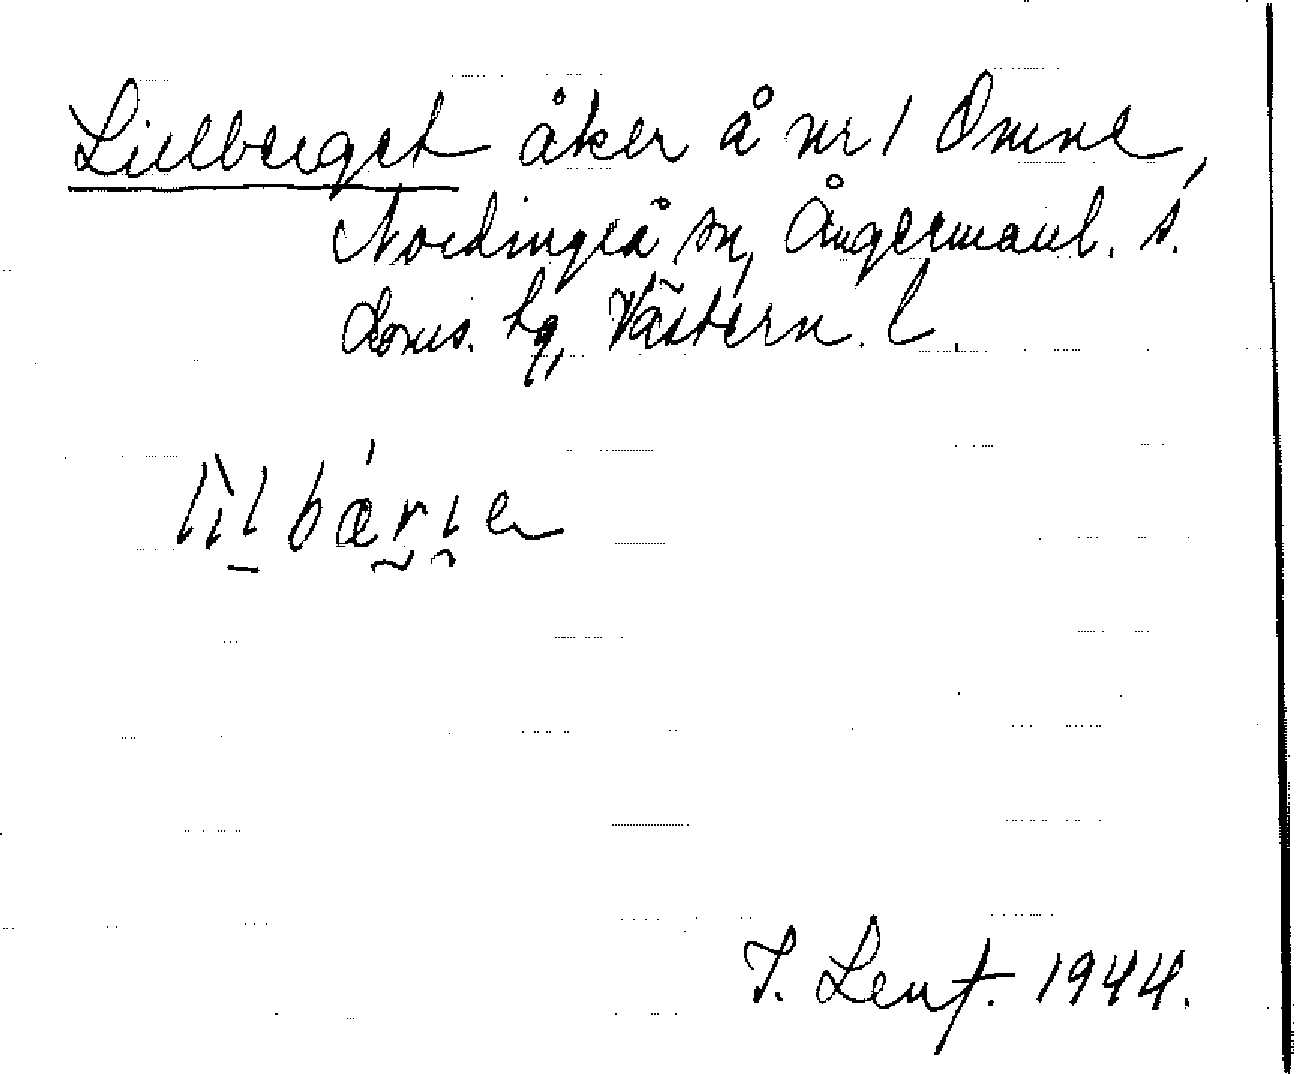 Lillberget åker å nr 1 Omne,
Nordingrå sn, Ångermanl. s.
doms. hg, Västern. l.
lìlbǽrıe
J. Lenf. 1944.